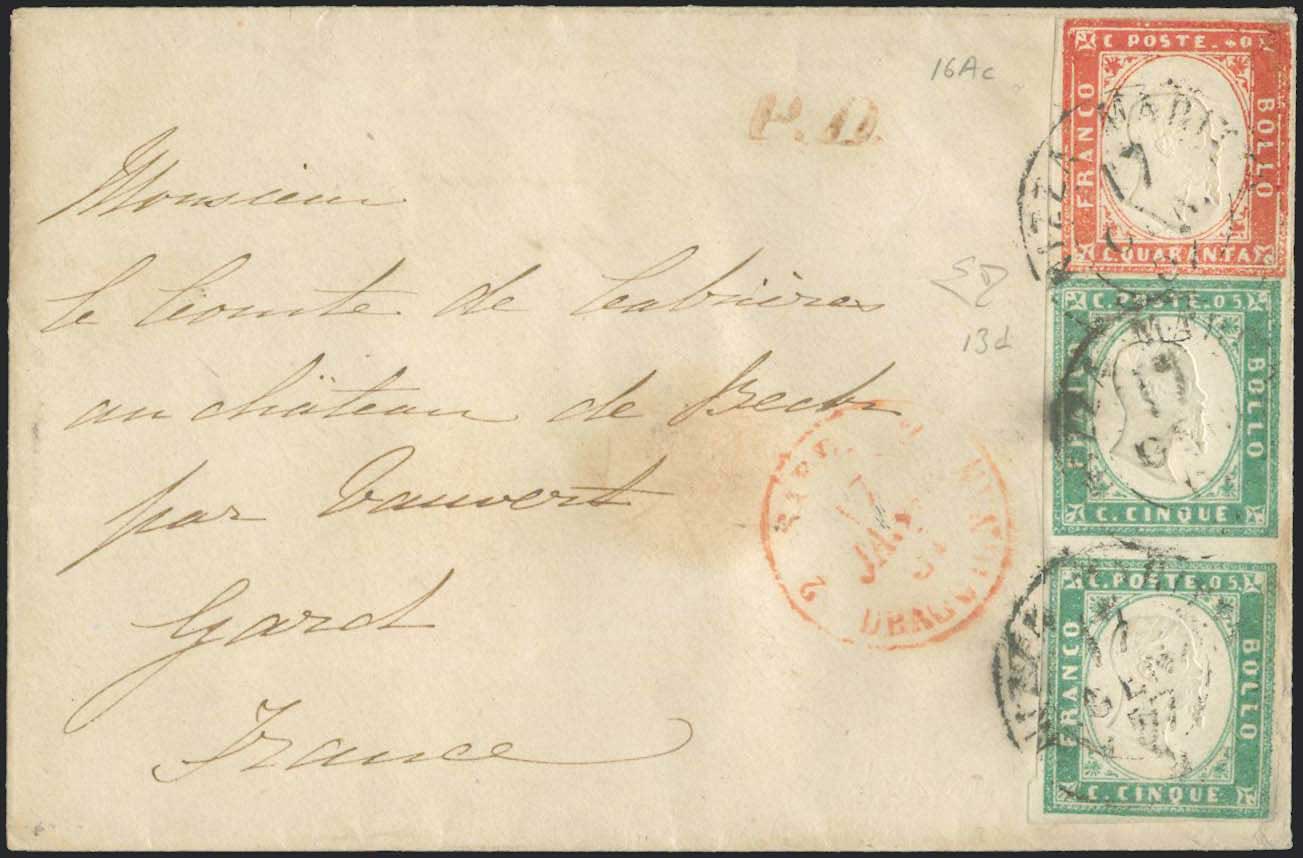 16Ac
P.D.
Monsieur
le Comte de Cabrières
au château de
par Vauvert
Gard
France
13d
2
17
JANV
C. POSTE. 40
FRANCO
BOLLO
C. QUARANTA
NIZZA MARIT
17
C. POSTE. 05
FRANCO
BOLLO
C. CINQUE
C. POSTE. 05
FRANCO
BOLLO
C. CINQUE